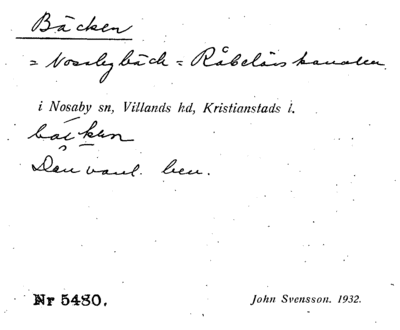 Bäcken
= Nosaby bäck = Råbelövskanalen
i Nosaby sn, Villands hd, Kristianstads l.
Den vanl. ben.
Nr 5480.
John Svensson. 1932.